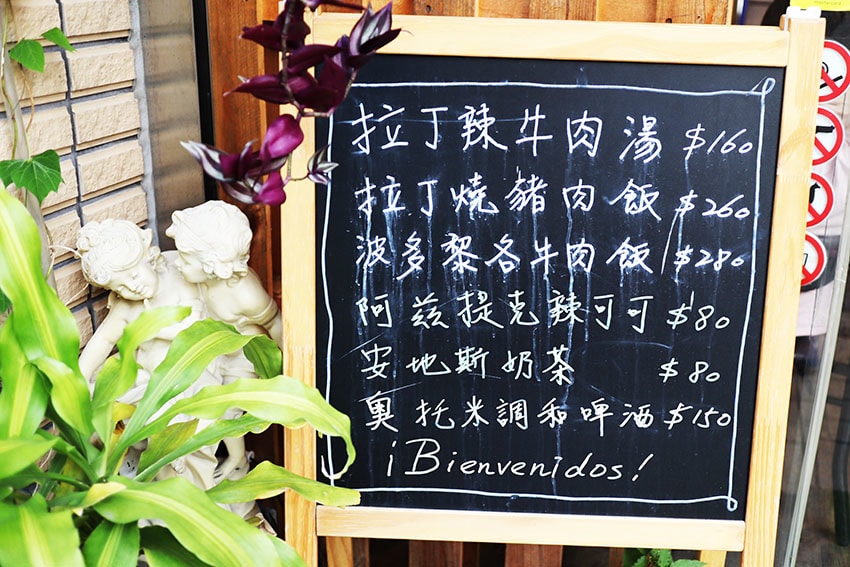 拉丁辣牛肉湯 $160
拉丁燒豬肉飯 $260
波多黎各牛肉飯 $280
阿茲提克辣可可 $80
安地斯奶茶 $80
奧托米調和啤酒 $150
¡Bienvenidos!